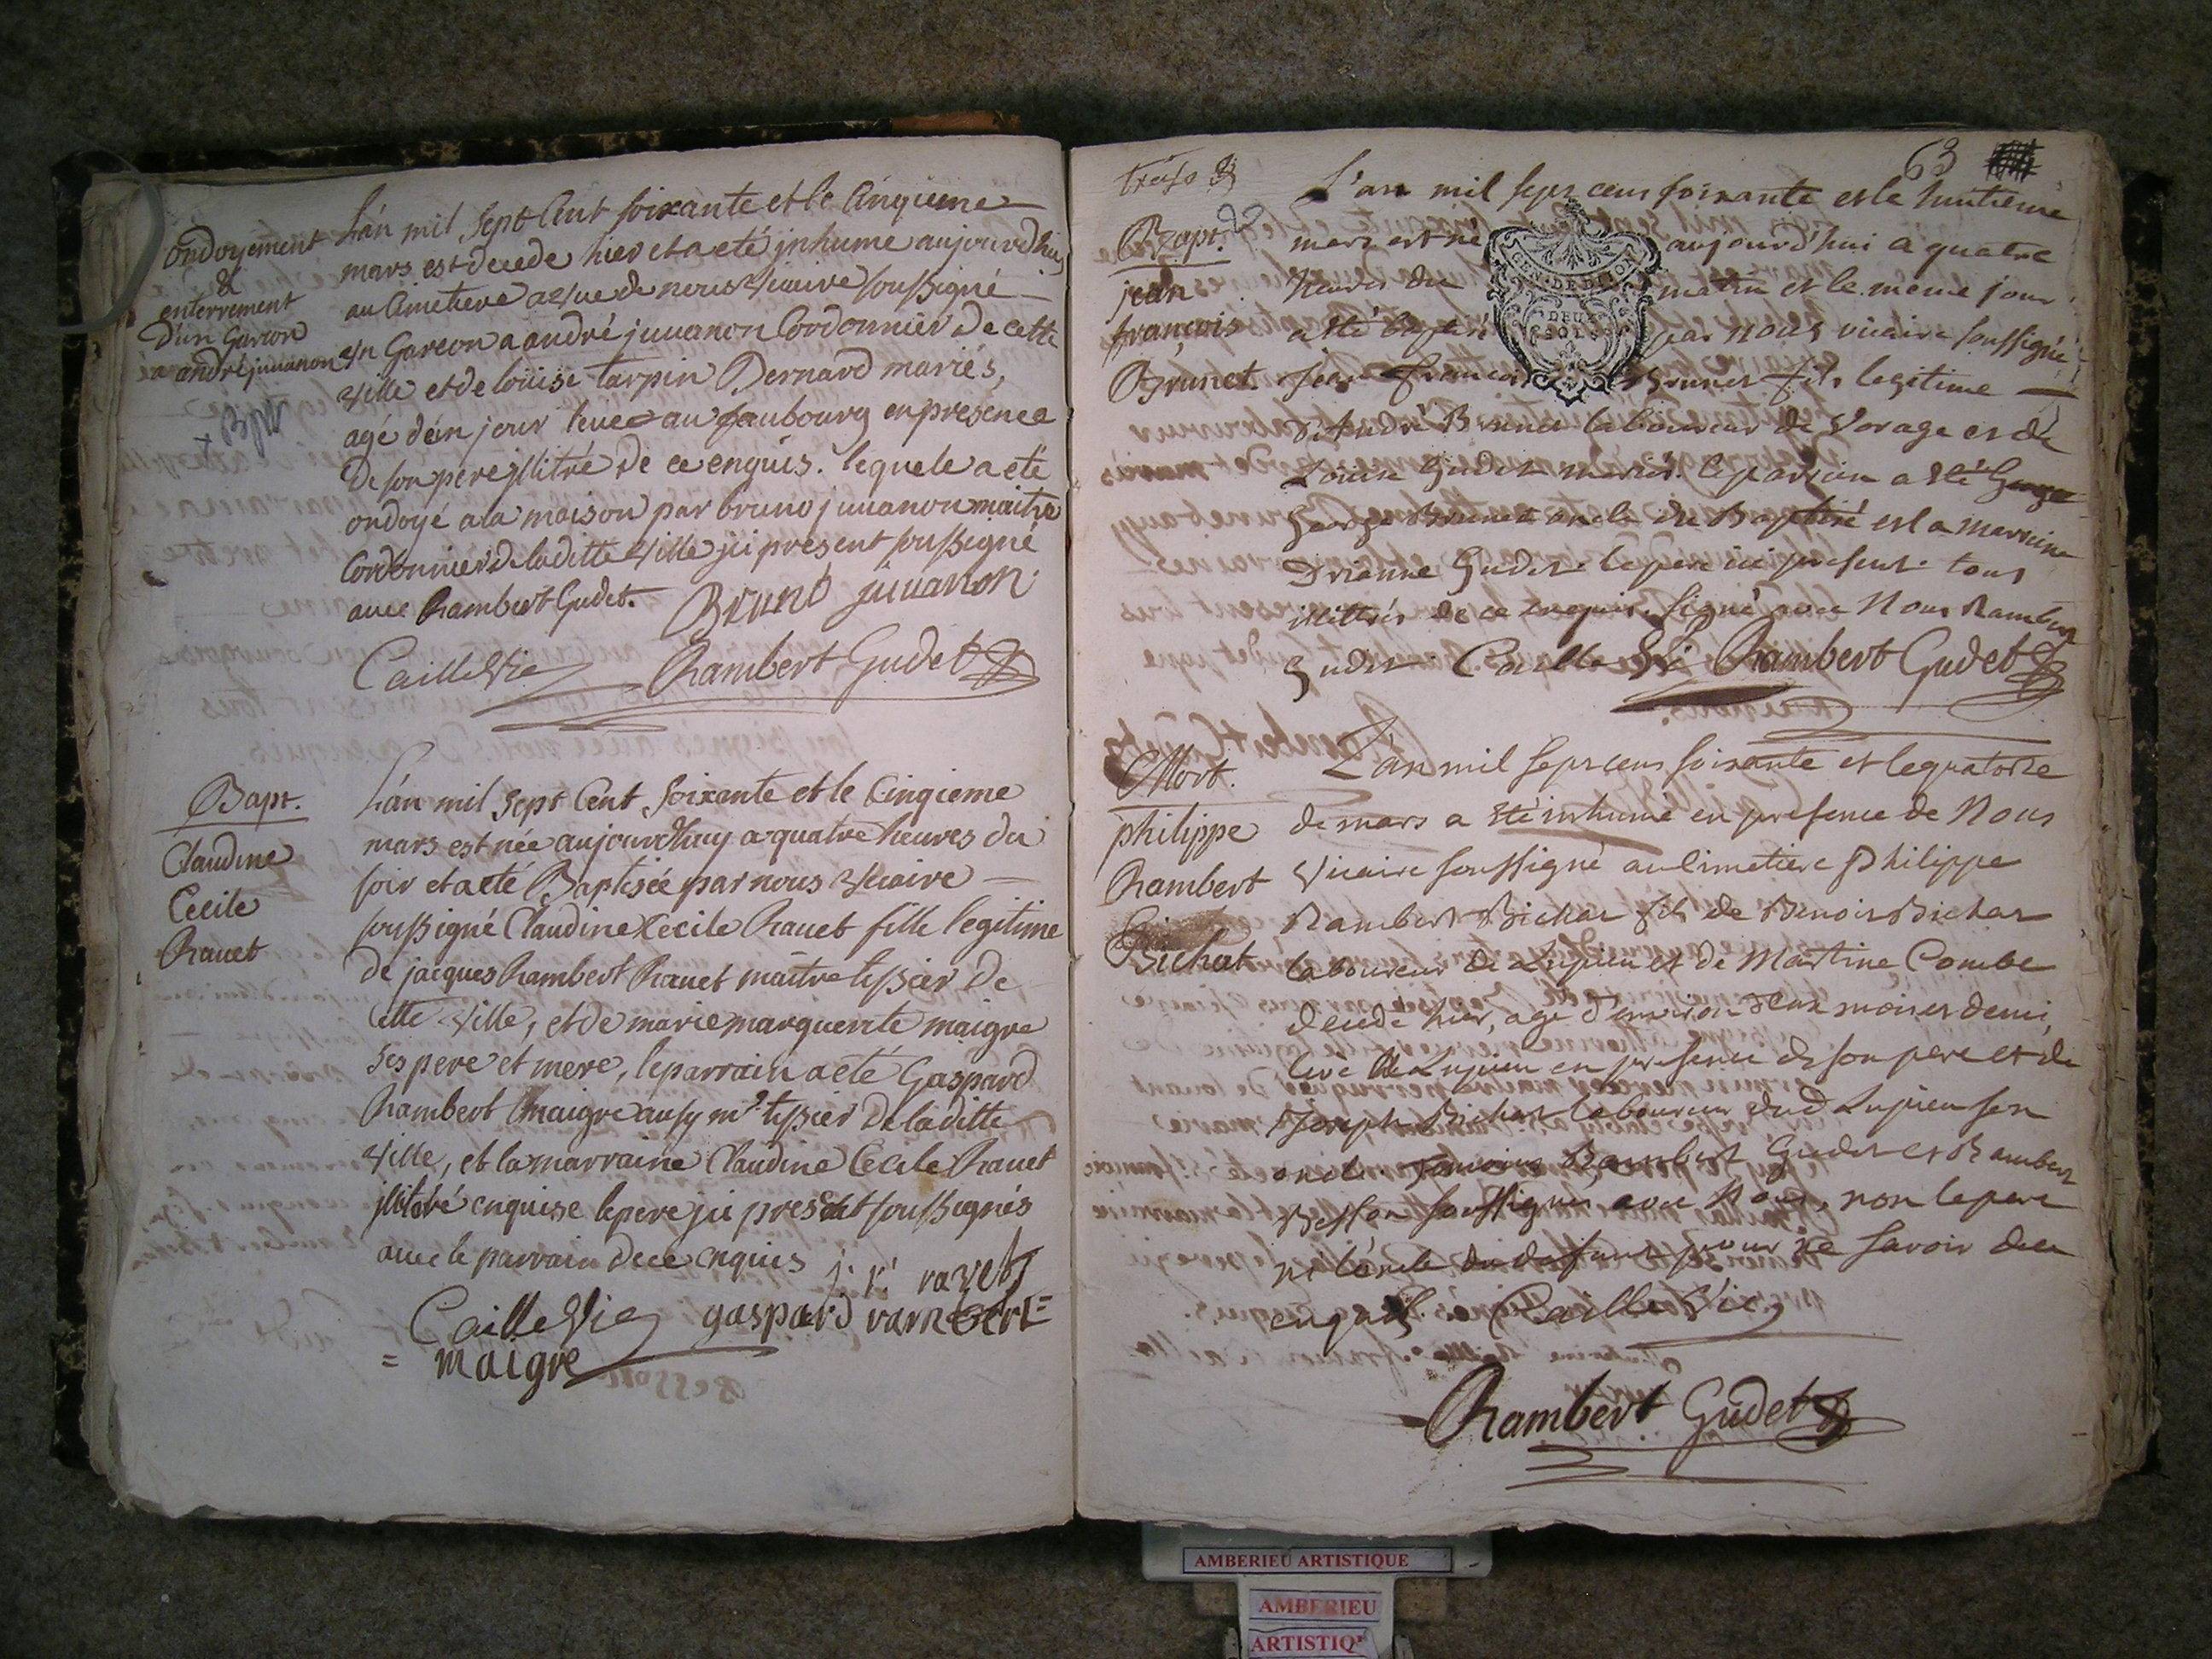 ondoyement
&
enterrement
D'un Garcon
a andré juuanon
+ Bpt
L'an mil Sept Cent soixante et le Cinquieme
mars est decedé hier et a eté jnhumé aujourdhuy
au Cimetiere a vue de nous vicaire soussigné
vn Garcon a andré juuanon Cordonnier de cette
ville et de loüise tarpin Bernard mariés,
agé d'un jour leué au faubourg en presence
de son pere jllitré de ce enquis. lequel a eté
ondoyé a la maison par bruno juuanon maitre
Cordonnier de laditte ville jci present soussigné
auec Rambert Gudet. Bruno juuanon
CailleVie Rambert Gudet
Bapt.
Claudine
Cecile
Rauet
L'an mil Sept Cent Soixante et le Cinqieme
mars est née aujourdhuy a quatre heures du
soir et a eté Baptisée par nous vicaire
soussigné Claudine Cecile Rauet fille legitime
de jacques Rambert Rauet maitre tissier de
Cette ville, et de marie marguerite maigre
Ses pere et mere, le parrain a eté Gaspard
Rambert maigre aussy mr tissier de laditte
ville, et la marraine Claudine Cecile Rauet
jllitéré enquise le pere jci present soussignés
auec le parrain de ce enquis j. r. ravet
CailleVie gaspard rambert =
= maigre
63
treize
Bapt.
jean
françois
Brunet
L'an mil sept cens soixante et le huitieme
mars est né aujourd'hui a quatre
heures du matin et le meme jour
a été baptisé par nous vicaire soussigné
jean françois Brunet fils legitime
d'André Brunet laboureur de Vorage et de
Louise Gudet mariés. le parrain a été George
George Brunet oncle du Baptisé et la marraine
Drianne Gudet. le pere ici present. tous
illittrés de ce enquis. signé avec Nous Rambert
Gudet CailleVie Rambert Gudet
GEN. DE DIJON
DEUX
SOLS
Mort.
philippe
Rambert
Bichat
L'an mil sept cens soixante et le quatorze
de mars a été inhumé en presence de Nous
Vicaire soussigné au Cimetiere Philippe
Rambert Bichat fils de Benoit Bichat
laboureur de Lupieu et de Martine Combe
decedé hier, agé d'environ deux mois et demi,
levé de Lupieu en presence de son pere et de
Joseph Bichat laboureur dud Lupieu son
oncle temoins Rambert Gudet et Rambert
Besson soussignés avec Nous, non le pere
ni l'oncle du defunt pour ne savoir de ce
enquis. CailleVie
Rambert Gudet
AMBERIEU ARTISTIQUE
AMBERIEU
ARTISTIQ